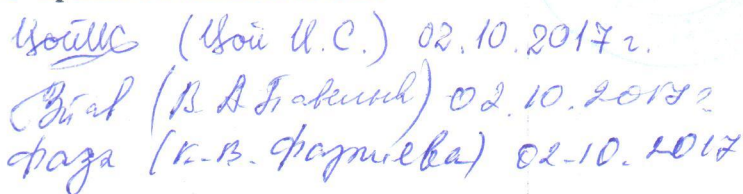 ЦойИС (Цой И.С.) 02.10.2017 г.
(В.А. 02.10.2017 г
Фазл (К.В. Фазлиева) 02.10.2017